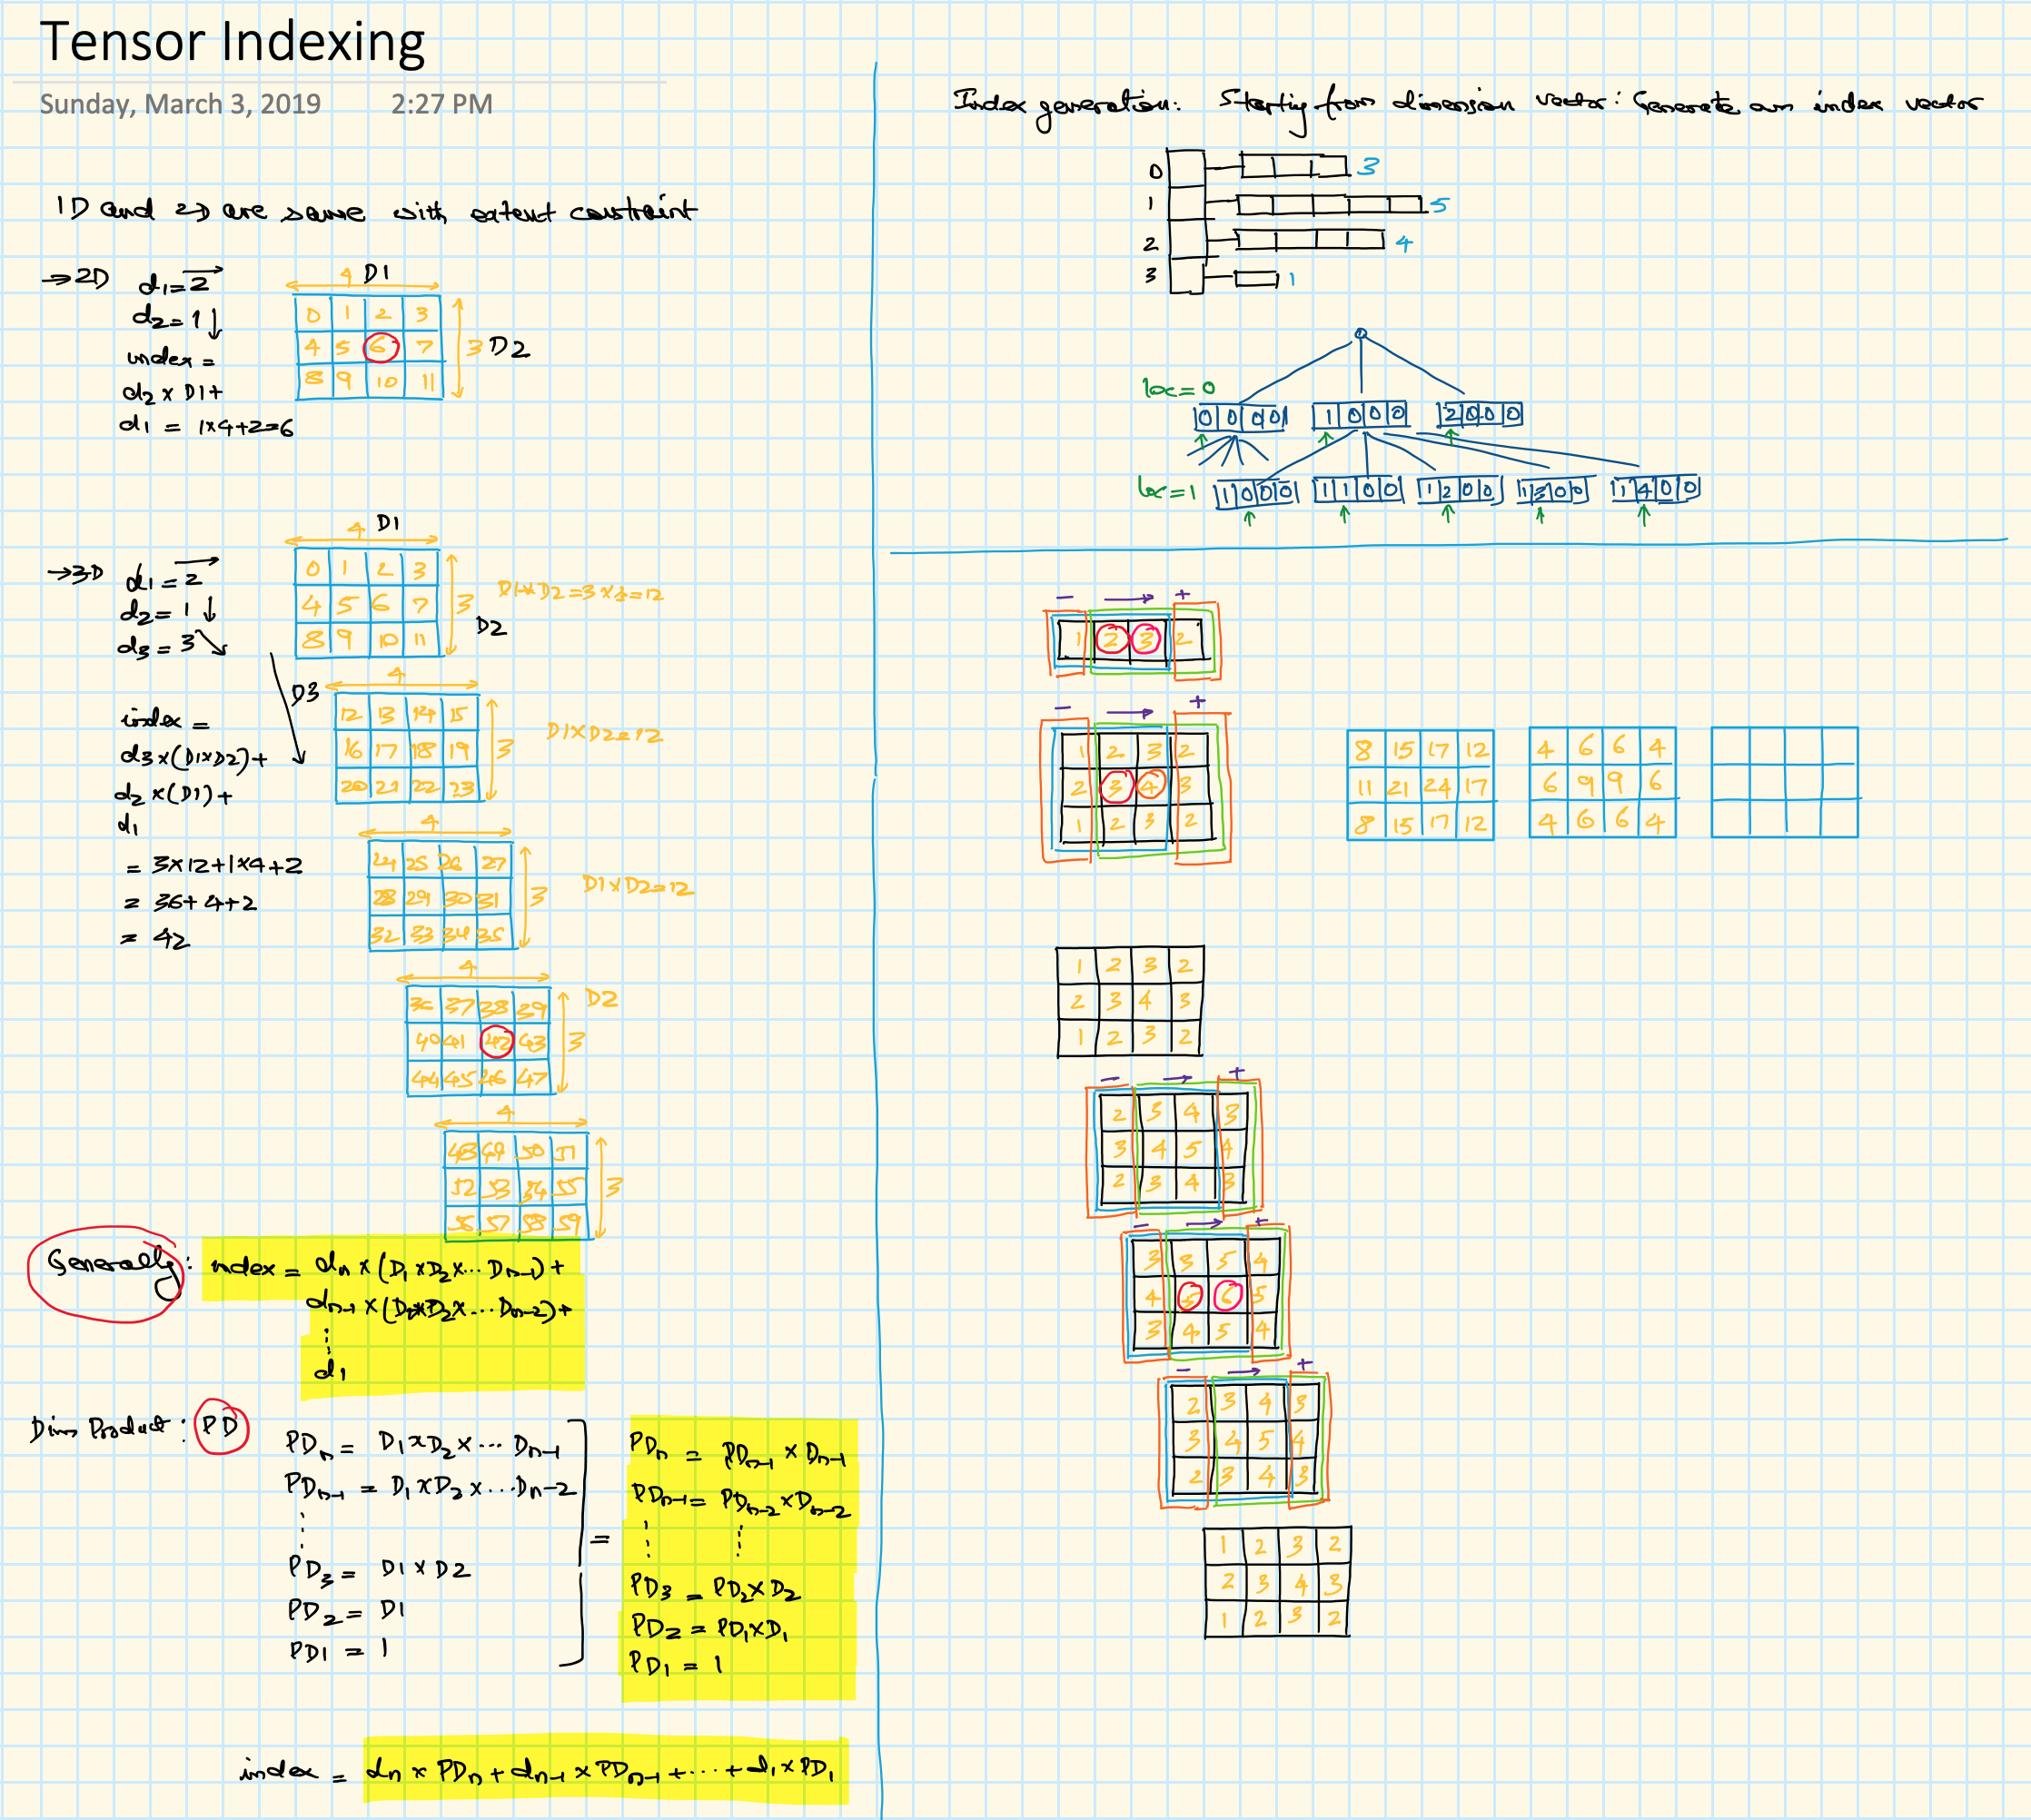 Tensor Indexing
Sunday, March 3, 2019 2:27 PM
1D and 2D are same with extent constraint
→2D d1=2
d2=1
index =
d2 × D1+
d1 = 1×4+2=6
4 D1
0 1 2 3
4 5 6 7
8 9 10 11
3 D2
→3D d1=2
d2=1
d3=3
index =
d3×(D1×D2)+
d2×(D1)+
d1
= 3×12+1×4+2
= 36+4+2
= 42
4 D1
0 1 2 3
4 5 6 7
8 9 10 11
3
D2
D1×D2=3×4=12
D3
4
12 13 14 15
16 17 18 19
20 21 22 23
3
D1×D2=12
4
24 25 26 27
28 29 30 31
32 33 34 35
3
D1×D2=12
4
36 37 38 39
40 41 42 43
44 45 46 47
D2
3
4
48 49 50 51
52 53 54 55
56 57 58 59
3
Generally: index = dn × (D1×D2×...Dn-1)+
dn-1 × (D1×D2×...Dn-2)+
⋮
d1
Dim Product: PD
PDn = D1×D2×...Dn-1
PDn-1 = D1×D2×...Dn-2
⋮
PD3 = D1×D2
PD2 = D1
PD1 = 1
=
PDn = PDn-1 × Dn-1
PDn-1 = PDn-2 × Dn-2
⋮ ⋮
PD3 = PD2×D2
PD2 = PD1×D1
PD1 = 1
index = dn × PDn + dn-1 × PDn-1 + ... + d1 × PD1
Index generation: Starting from dimension vector: Generate an index vector
0 3
1 5
2 4
3 1
loc=0
0 0 0 0 1 0 0 0 2 0 0 0
loc=1
1 0 0 0 1 1 0 0 1 2 0 0 1 3 0 0 1 4 0 0
- → +
1 2 3 2
- → +
1 2 3 2
2 3 4 3
1 2 3 2
8 15 17 12
11 21 24 17
8 15 17 12
4 6 6 4
6 9 9 6
4 6 6 4
1 2 3 2
2 3 4 3
1 2 3 2
- → +
2 3 4 3
3 4 5 4
2 3 4 3
- → +
3 3 5 4
4 5 6 5
3 4 5 4
- → +
2 3 4 3
3 4 5 4
2 3 4 3
1 2 3 2
2 3 4 3
1 2 3 2